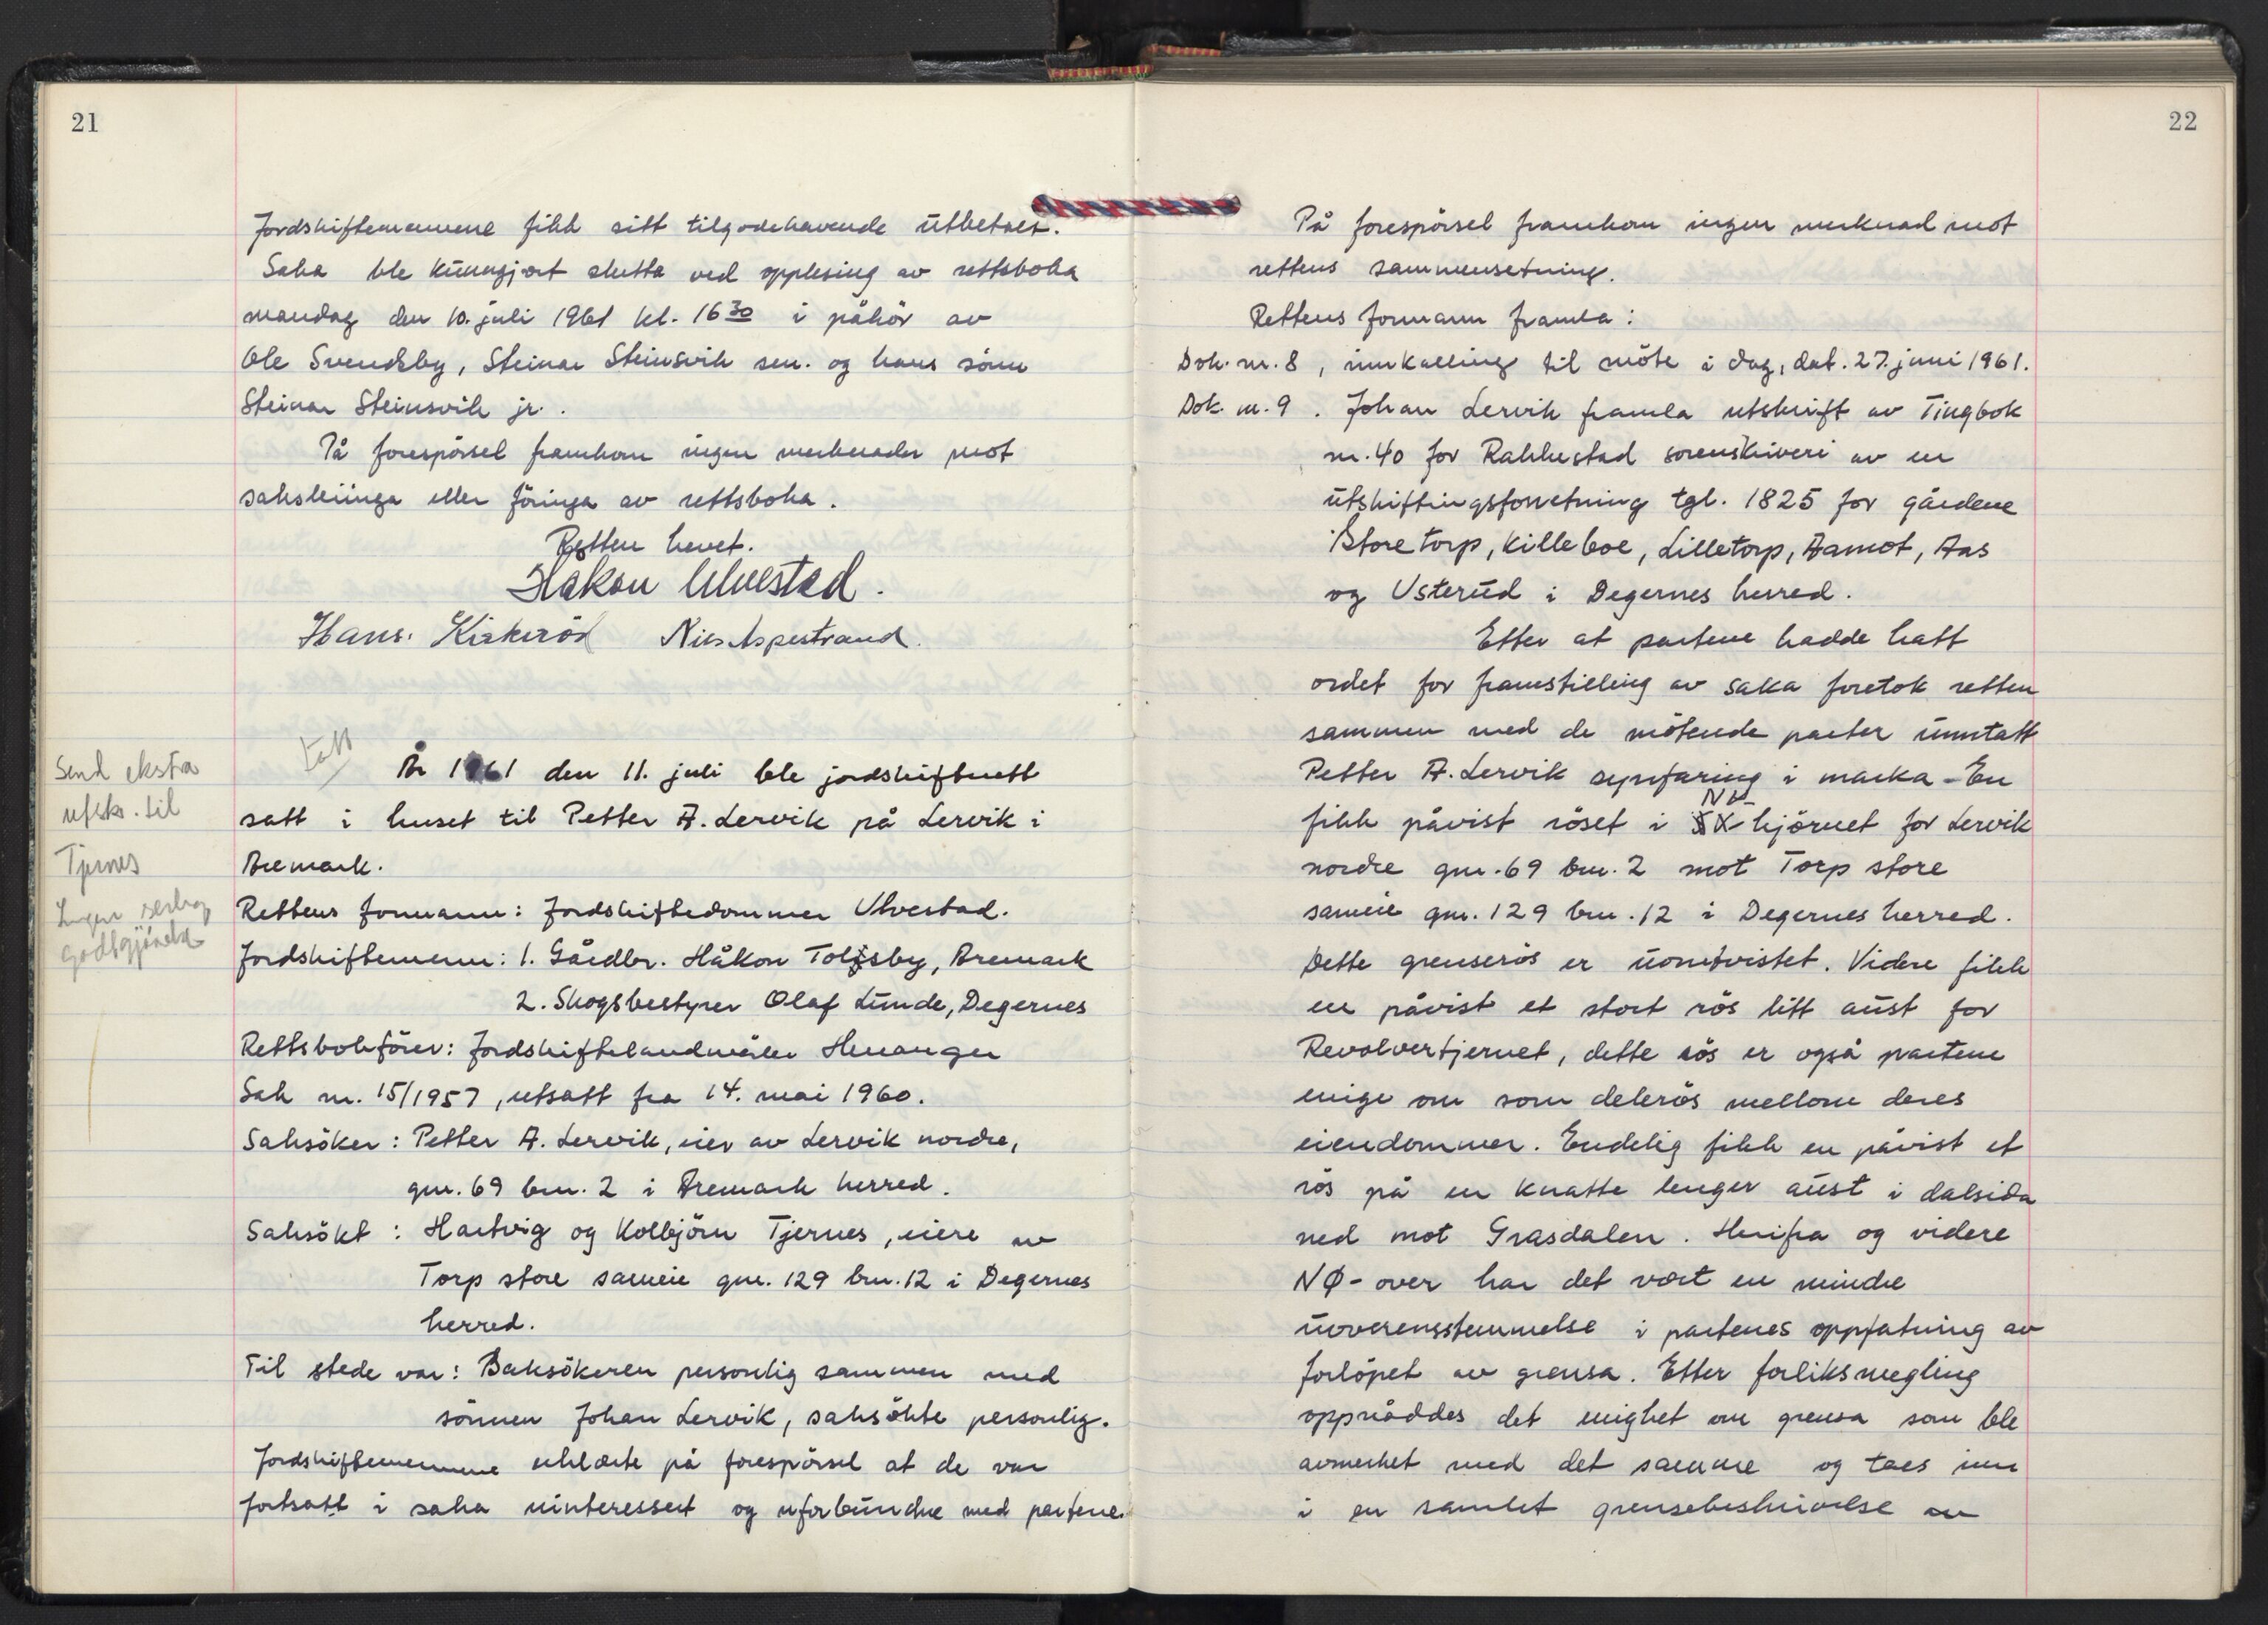 21
Jordskiftemennene fikk sitt tilgodehavende utbetalt.
Saka ble kunngjort slutta ved opplesing av rettsboka
mandag den 10. juli 1961 kl. 16 30 i påhør av
Ole Svendsby, Steinar Steinsvik sen. og hans sønn
Steinar Steinsvik jr..
På forespørsel framkom ingen merknader mot
saksleiinga eller føringa av rettsboka.
Retten hevet.
Håkon Ulvestad.
Hans. Kirkerød Nils Aspestrand.
Send ekstra
utskr. til
Tjernes
Ingen
godtgjørelse
År 1961 den 11. juli ble jordskifterett
satt i huset til Petter A. Lervik på Lervik i
Aremark.
Rettens formann: Jordskiftedommer Ulvestad.
Jordskiftemenn: 1. Gårdbr. Håkon Tolfsby, Aremark
2. Skogsbestyrer Olaf Lunde, Degernes
Rettsbokfører: Jordskiftelandmåler Henanger
Sak nr. 15/1957, utsatt fra 14. mai 1960.
Saksøker: Petter A. Lervik, eier av Lervik nordre,
gnr. 69 bnr. 2 i Aremark herred.
Saksøkt: Hartvig og Kolbjørn Tjernes, eiere av
Torp store sameie gnr. 129 bnr. 12 i Degernes
herred.
Til stede var: Saksøkeren personlig sammen med
sønnen Johan Lervik, saksøkte personlig.
Jordskiftemennene erklærte på forespørsel at de var
fortsatt i saka uinteressert og uforbundne med partene.
22
På forespørsel framkom ingen merknad mot
rettens sammensetning.
Rettens formann framla:
Dok. nr. 8, innkalling til møte i dag, dat. 27. juni 1961.
Dok. nr. 9. Johan Lervik framla utskrift av Tingbok
nr. 40 for Rakkestad sorenskriveri av en
utskiftingsforretning tgl. 1825 for gårdene
Store torp, Killeboe, Lilletorp, Aamot, Aas
og Usterud i Degernes herred.
Etter at partene hadde hatt
ordet for framstilling av saka foretok retten
sammen med de møtende parter unntatt
Petter A. Lervik synfaring i marka - En
fikk påvist røset i hjørnet for Lervik
nordre gnr. 69 bnr. 2 mot Torp store
sameie gnr. 129 bnr. 12 i Degernes herred.
Dette grenserøs er uomtvistet. Videre fikk
en påvist et stort røs litt aust for
Revolvertjernet, dette røs er også partene
enige om som delerøs mellom deres
eiendommer. Endelig fikk en påvist et
røs på en knatte lenger aust i dalsida
ned mot Grasdalen. Herifra og videre
NØ-over har det vært en mindre
uoverensstemmelse i partenes oppfatning av
forløpet av grensa. Etter forliksmegling
oppnåddes det enighet om grensa som ble
avmerket med det samme og taes inn
i en samlet grensebeskrivelse av